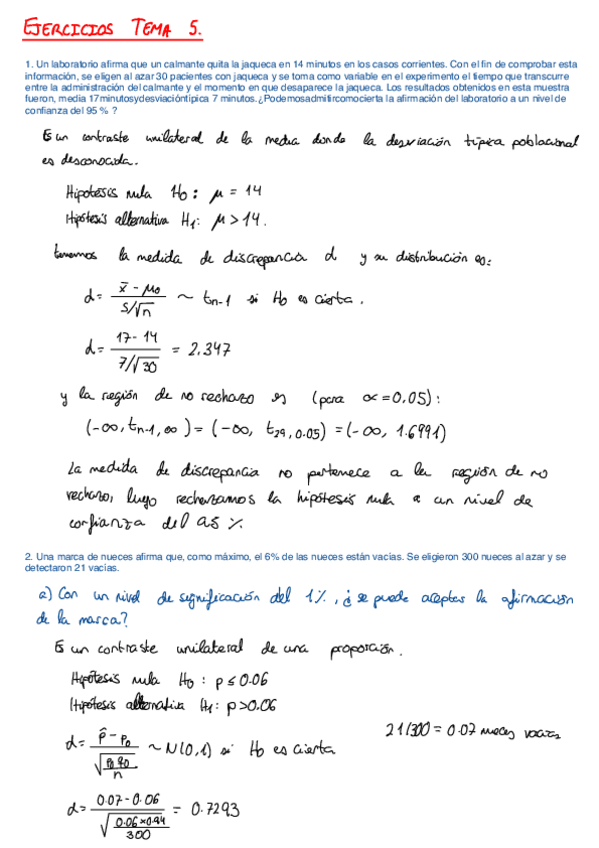 EJERCICIOS TEMA 5.
1. Un laboratorio afirma que un calmante quita la jaqueca en 14 minutos en los casos corrientes. Con el fin de comprobar esta
información, se eligen al azar 30 pacientes con jaqueca y se toma como variable en el experimento el tiempo que transcurre
entre la administración del calmante y el momento en que desaparece la jaqueca. Los resultados obtenidos en esta muestra
fueron, media 17minutosydesviacióntípica 7 minutos.¿Podemosadmitircomocierta la afirmación del laboratorio a un nivel de
confianza del 95 % ?
Es un contraste unilateral de la media donde la desviación típica poblacional
es desconocida.
Hipótesis nula H₀: μ = 14
Hipótesis alternativa H₁: μ > 14.
tenemos la medida de discrepancia d y su distribución es:
d = (x̄ - μ₀) / (s/√n) ~ tn-1 si H₀ es cierta.
d = (17 - 14) / (7/√30) = 2.347
y la región de no rechazo es (para α = 0.05):
(-∞, tn-1,α) = (-∞, t29,0.05) = (-∞, 1.6991)
La medida de discrepancia no pertenece a la región de no
rechazo, luego rechazamos la hipótesis nula a un nivel de
confianza del 95 %.
2. Una marca de nueces afirma que, como máximo, el 6% de las nueces están vacías. Se eligieron 300 nueces al azar y se
detectaron 21 vacías.
a) Con un nivel de significación del 1%, ¿se puede aceptar la afirmación
de la marca?
Es un contraste unilateral de una proporción.
Hipótesis nula H₀: p ≤ 0.06
Hipótesis alternativa H₁: p > 0.06
21/300 = 0.07 nueces vacías
d = (p̂ - p₀) / √(p₀q₀/n) ~ N(0,1) si H₀ es cierta
d = (0.07 - 0.06) / √(0.06×0.94/300) = 0.7293